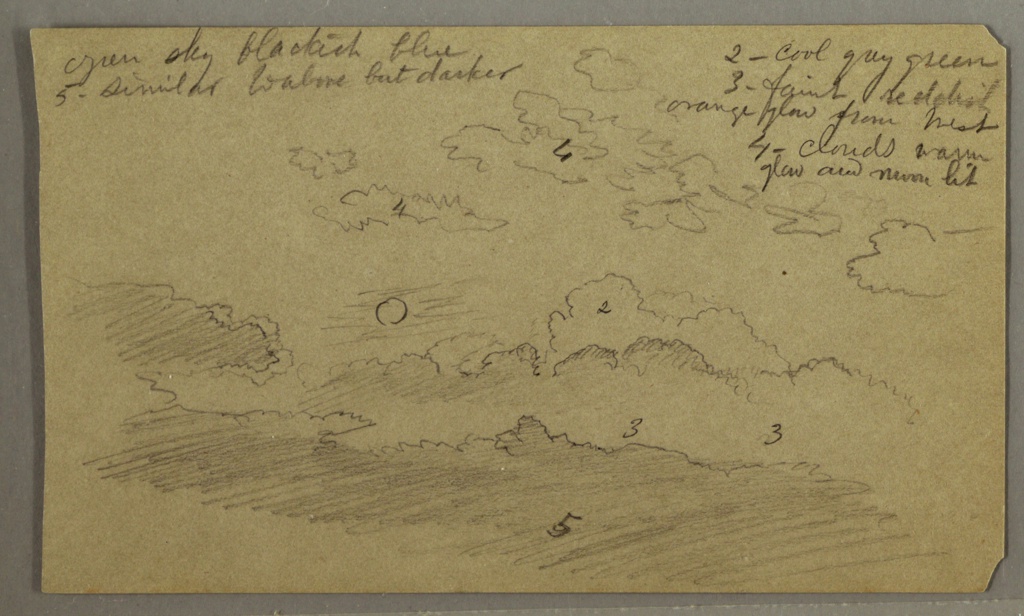 open sky blackish blue
5 - similar to above but darker
2 - Cool gray green
3 - faint reddish
orange glow from West
4 - clouds warm
glow and moon lit
4
4
2
3 3
5